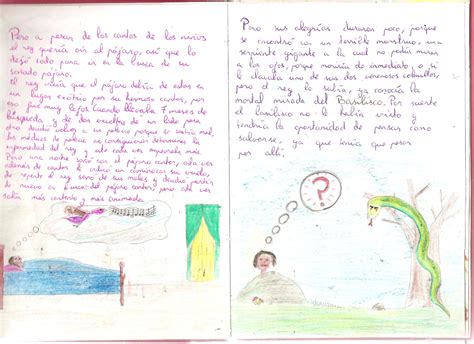 Pero a pesar de los cantos de los niños
el rey quería oir al pájaro, así que lo
dejó todo para ir en busca de su
ansiado pájaro.
El rey sabía que el pájaro debía de estar en
un lugar exótico por su hermoso cantar, por
eso fue muy lejos. Cuando llevaba 7 meses de
búsqueda, y de dar vueltas de un lado para
otro decidió volver a su palacio porque se sentía mal.
Los médicos de palacio no consiguieron determinar la
enfermedad del rey y este cada vez empeoraba más.
Pero una noche soñó con el pájaro cantor, esta vez
además de cantar le indicó un camino
de repente el rey de sus males y decidió partir
de nuevo en busca del pájaro cantor, pero esta vez
salía más contento y más animado.
Pero sus alegrías duraron poco, porque
se encontró con un terrible monstruo, una
serpiente gigante a la cual no podía mirar
a los ojos, porque moriría de inmediato, o si
le clavaba uno de sus dos venenosos colmillos,
pero el rey lo sabía, ya conocía la
mortal mirada del Basilisco. Por suerte
el basilisco no le había visto y
tendría la oportunidad de pensar como
salvarse, ya que tenía que pasar
por allí.
?